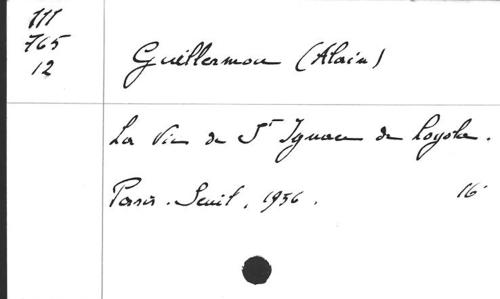 III
765
12
Guillermou (Alain)
La Vie de St Ignace de Loyola.
Paris. Seuil, 1956. 16